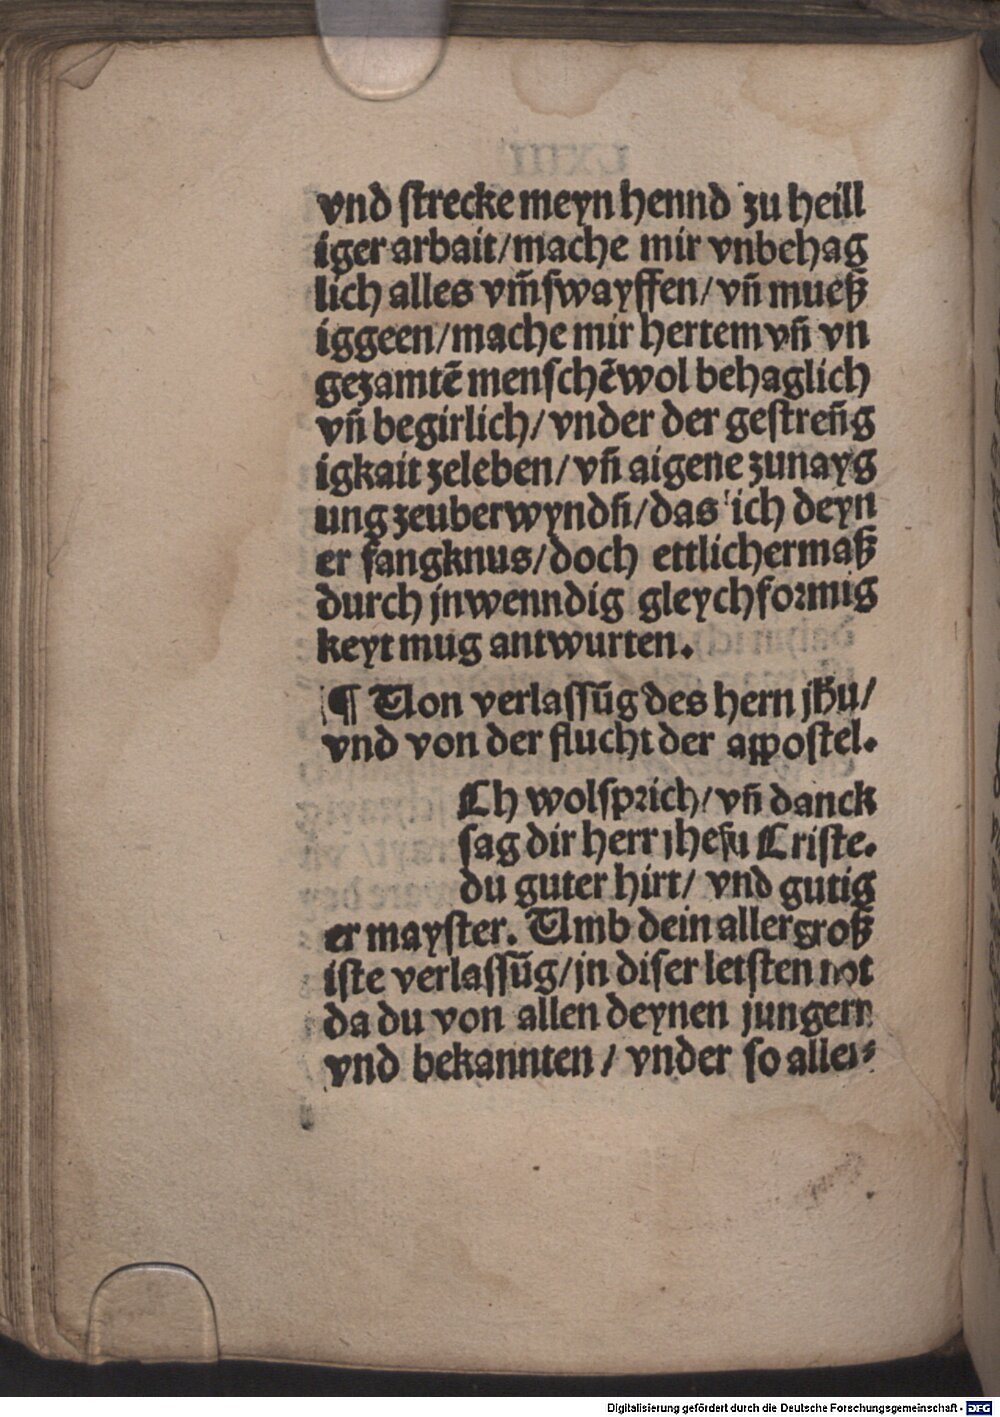 vnd ſtrecke meyn hennd zu heill
iger arbait/mache mir vnbehag
lich alles vm̄ſwayffen/vn̄ mueß
iggeen/mache mir hertem vn̄ vn
gezamtē menſchē wol behaglich
vn̄ begirlich/vnder der geſtren̄g
igkait zeleben/vn̄ aigene zunayg
ung zeuberwyndn̄/das ich deyn
er fangknus/doch ettlichermaß
durch jnwenndig gleychformig
keyt mug antwurten.
¶ Von verlaſſūg des hern jhū/
vnd von der flucht der appoſtel.
Ch wolſprich/vn̄ danck
ſag dir herr jheſu Criſte.
du guter hirt/ vnd gutig
er mayſter. Vmb dein allergroß
iſte verlaſſūg/jn diſer letſten not
da du von allen deynen jungern
vnd bekannten/ vnder ſo aller⸗
Digitalisierung gefördert durch die Deutsche Forschungsgemeinschaft - DFG